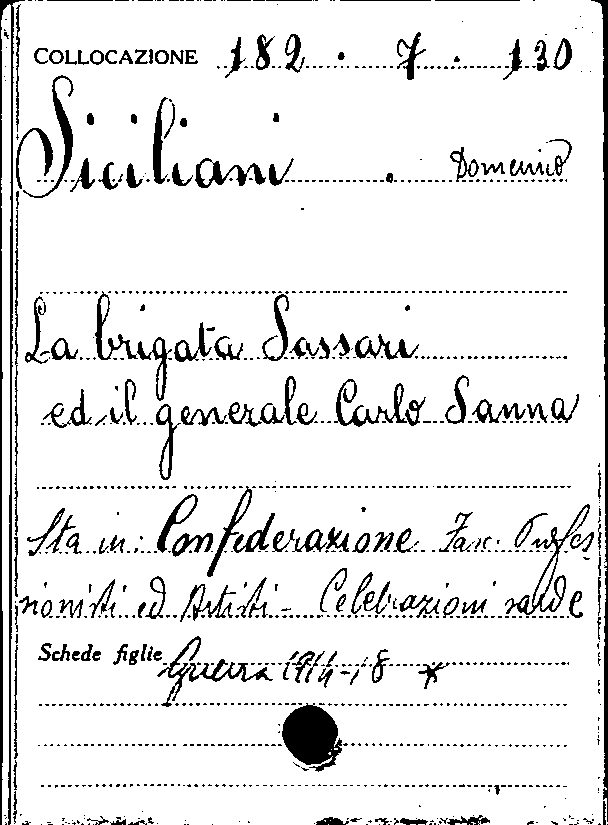 COLLOCAZIONE 182 . 7 . 130
Siciliani . Domenico
La brigata Sassari
ed il generale Carlo Sanna
Sta in: Confederazione Fasc. Profes-
sionisti ed Artisti - Celebrazioni sarde
Schede figlie Guerra 1914-18 *